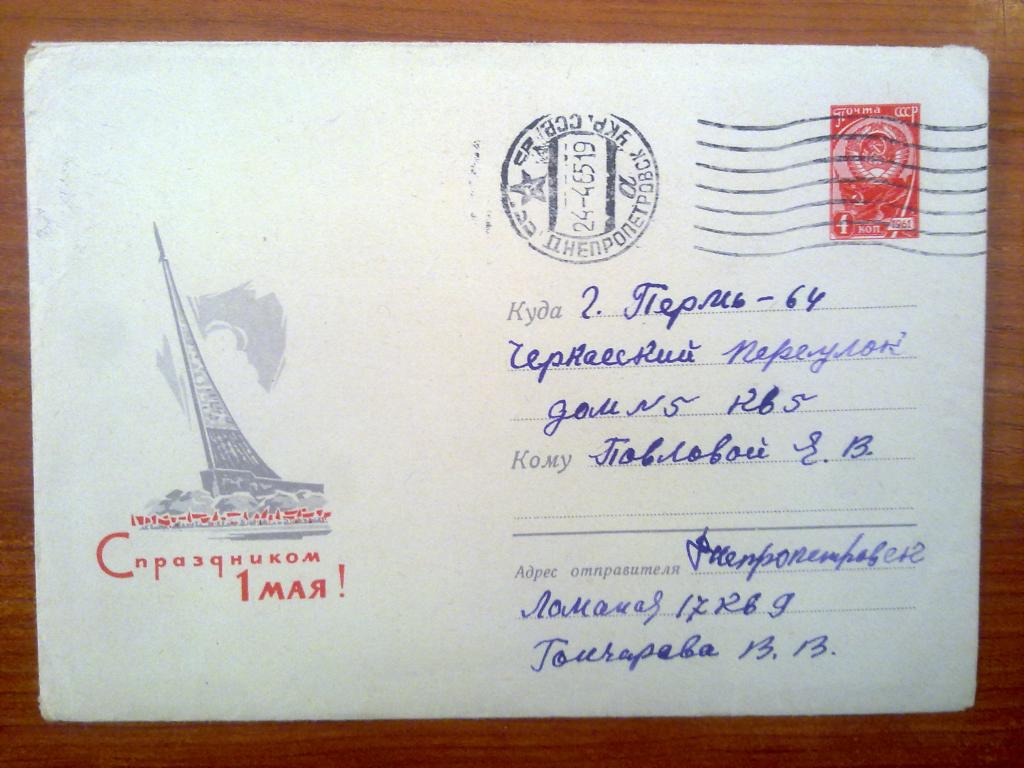 Почта СССР
4 коп. 1961
ДНЕПРОПЕТРОВСК УКР. ССР
24-4 65 19
20
Куда г. Пермь-64
Черкасский переулок
дом N 5 кв 5
Кому Повловой Я. В.
Адрес отправителя Днепропетровск
Ломаная 17 кв 9
Гончарова В. В.
С праздником
1 МАЯ!